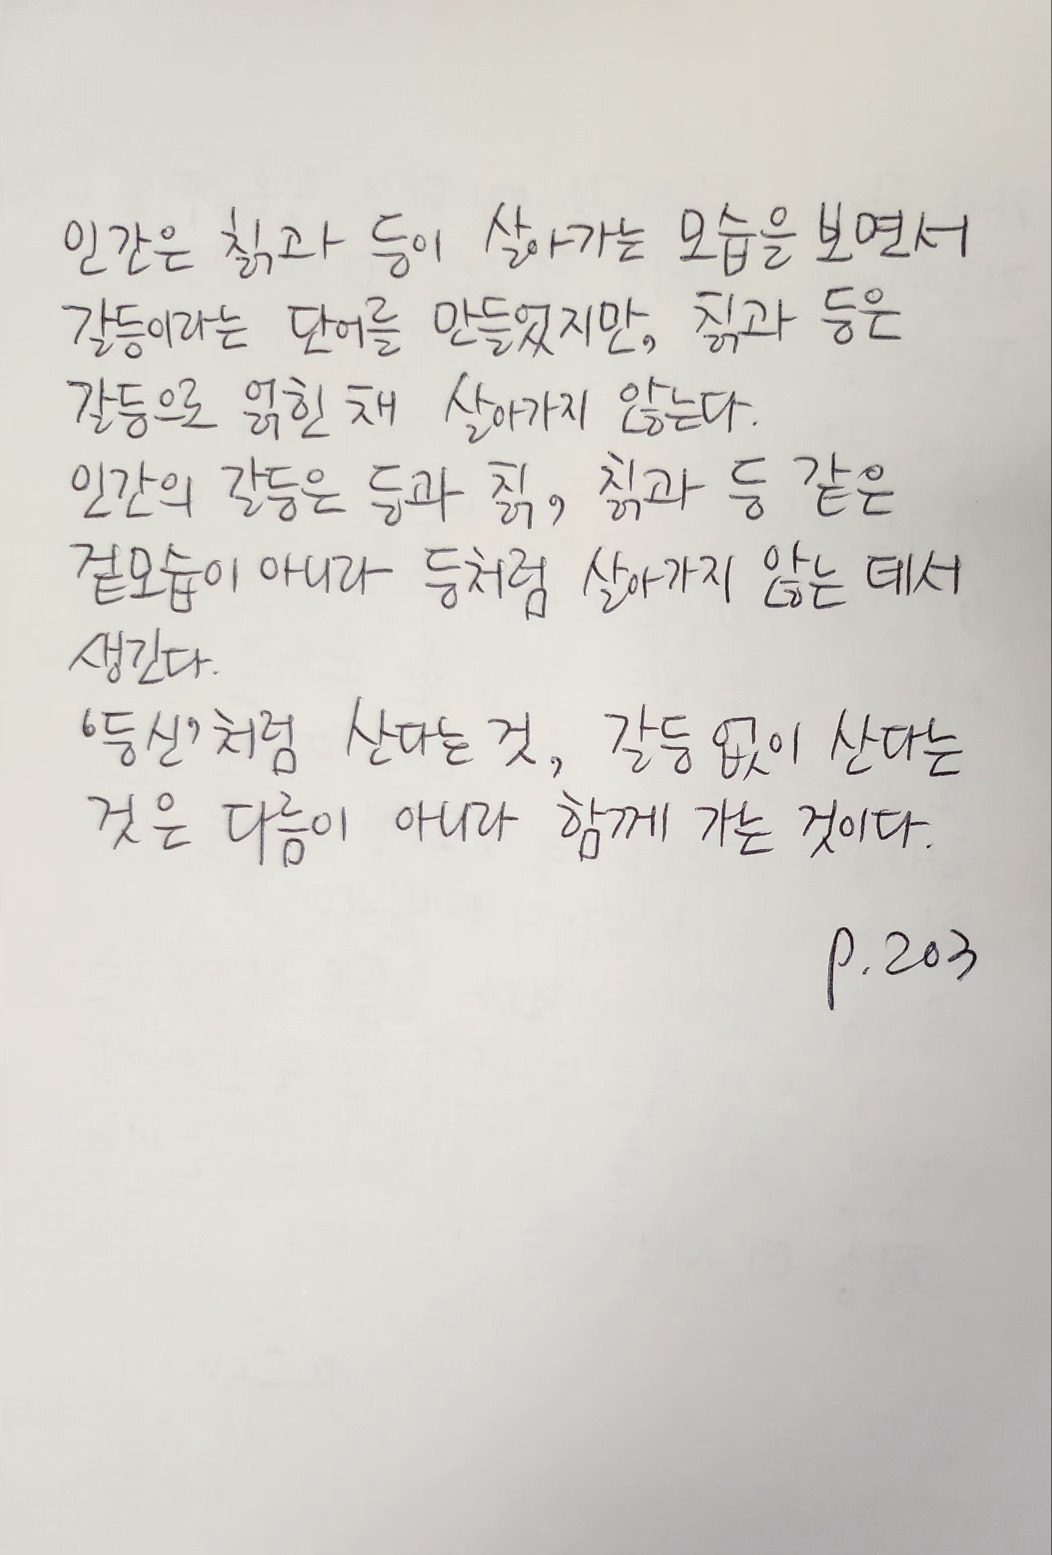 인간은 칡과 등이 살아가는 모습을 보면서
갈등이라는 단어를 만들었지만, 칡과 등은
갈등으로 얽힌 채 살아가지 않는다.
인간의 갈등은 등과 칡, 칡과 등 같은
겉모습이 아니라 등처럼 살아가지 않는 데서
생긴다.
'등신'처럼 산다는 것, 갈등 없이 산다는
것은 다름이 아니라 함께 가는 것이다.
p.203